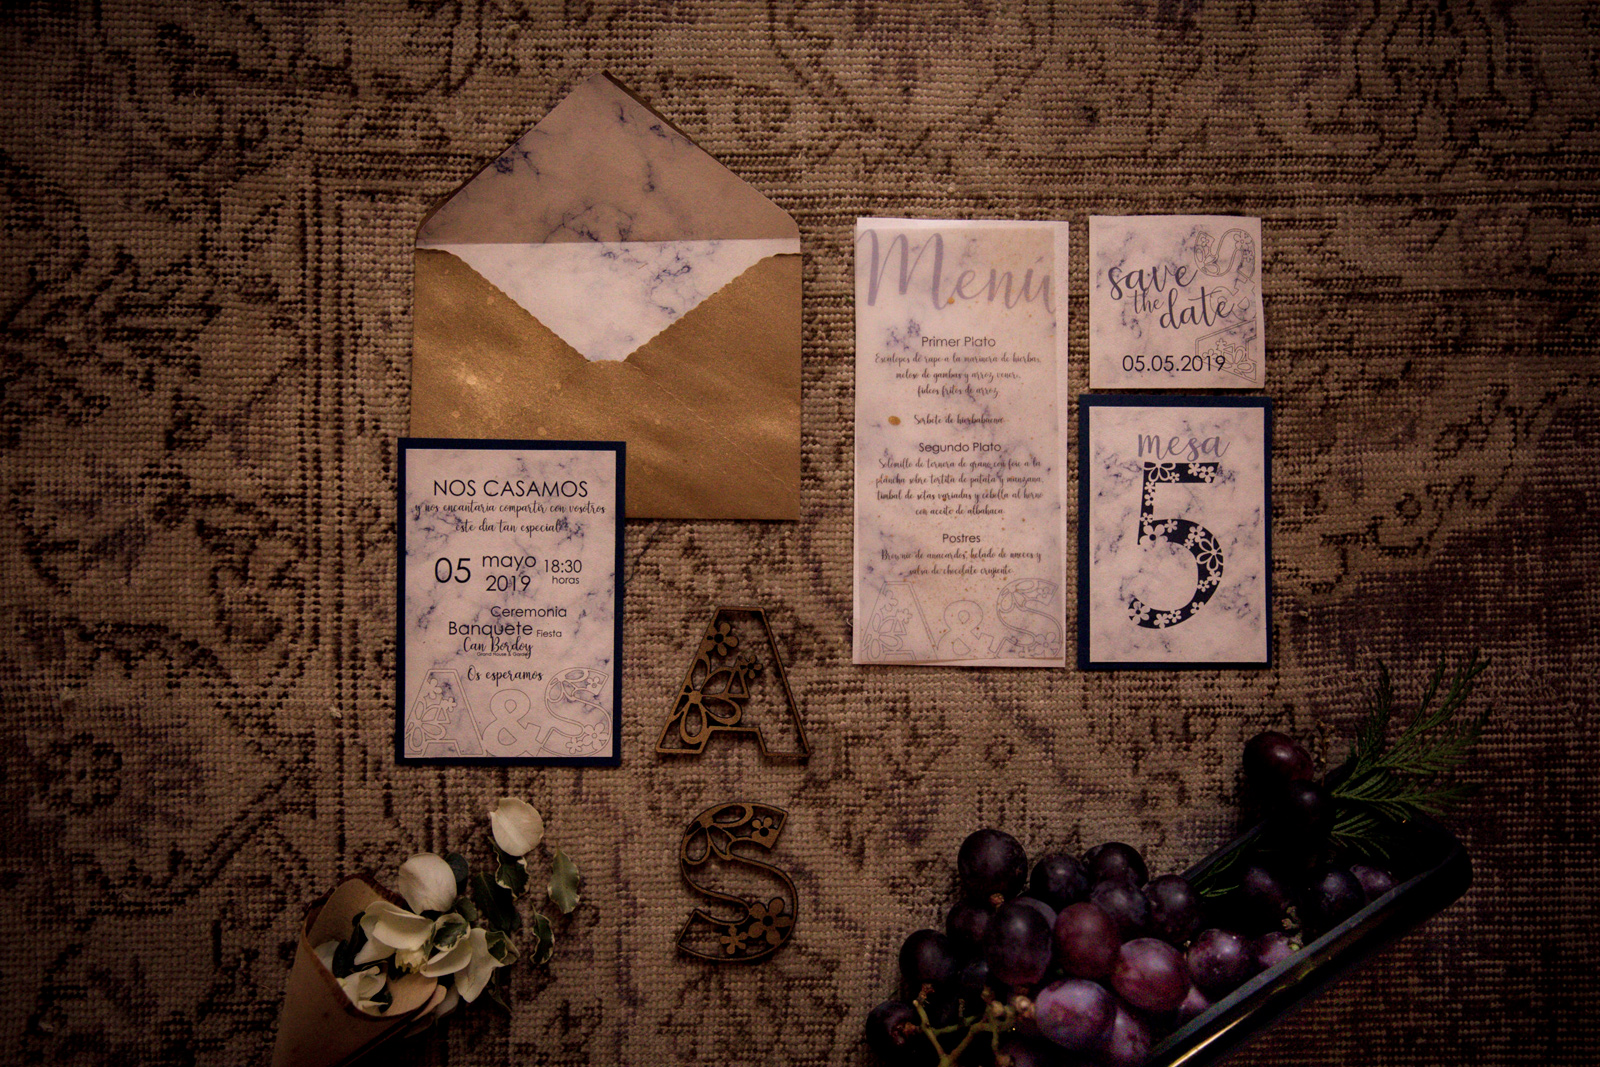 NOS CASAMOS
y nos encantaria compartir con vosotros
este dia tan especial
05 mayo 2019 18:30 horas
Ceremonia
Banquete Fiesta
Can Bordoy
Grand House & Garden
Os esperamos
A&S
A
S
Menú
Primer Plato
Escalopes de rape a la marinera de hierbas,
meloso de gambas y arroz vener,
fideos fritos de arroz
Sorbete de hierbabuena
Segundo Plato
Solomillo de ternera de grano con foie a la
plancha sobre tortita de patata y manzana,
timbal de setas variadas y cebolla al horno
con aceite de albahaca
Postres
Brownie de anacardos, helado de nueces y
salsa de chocolate crujiente
A&S
save
the
date
05.05.2019
mesa
5